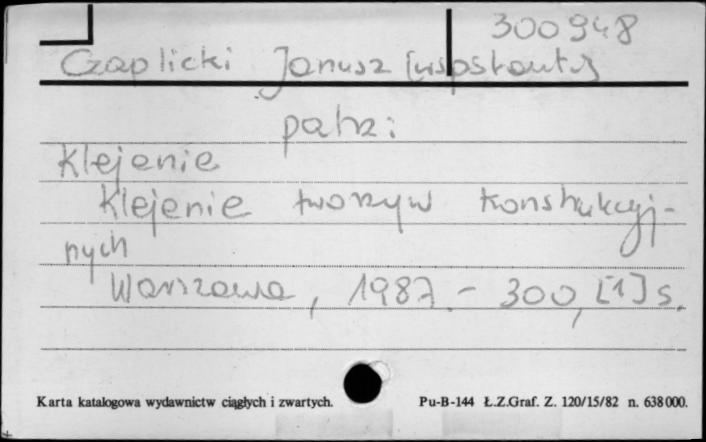 300948
Czaplicki Janusz [współaut.]
patrz:
Klejenie
Klejenie tworzyw konstrukcyj-
nych
Warszawa, 1987.- 300, [1] s.
Karta katalogowa wydawnictw ciągłych i zwartych.
Pu-B-144 Ł.Z.Graf. Z. 120/15/82 n. 638000.